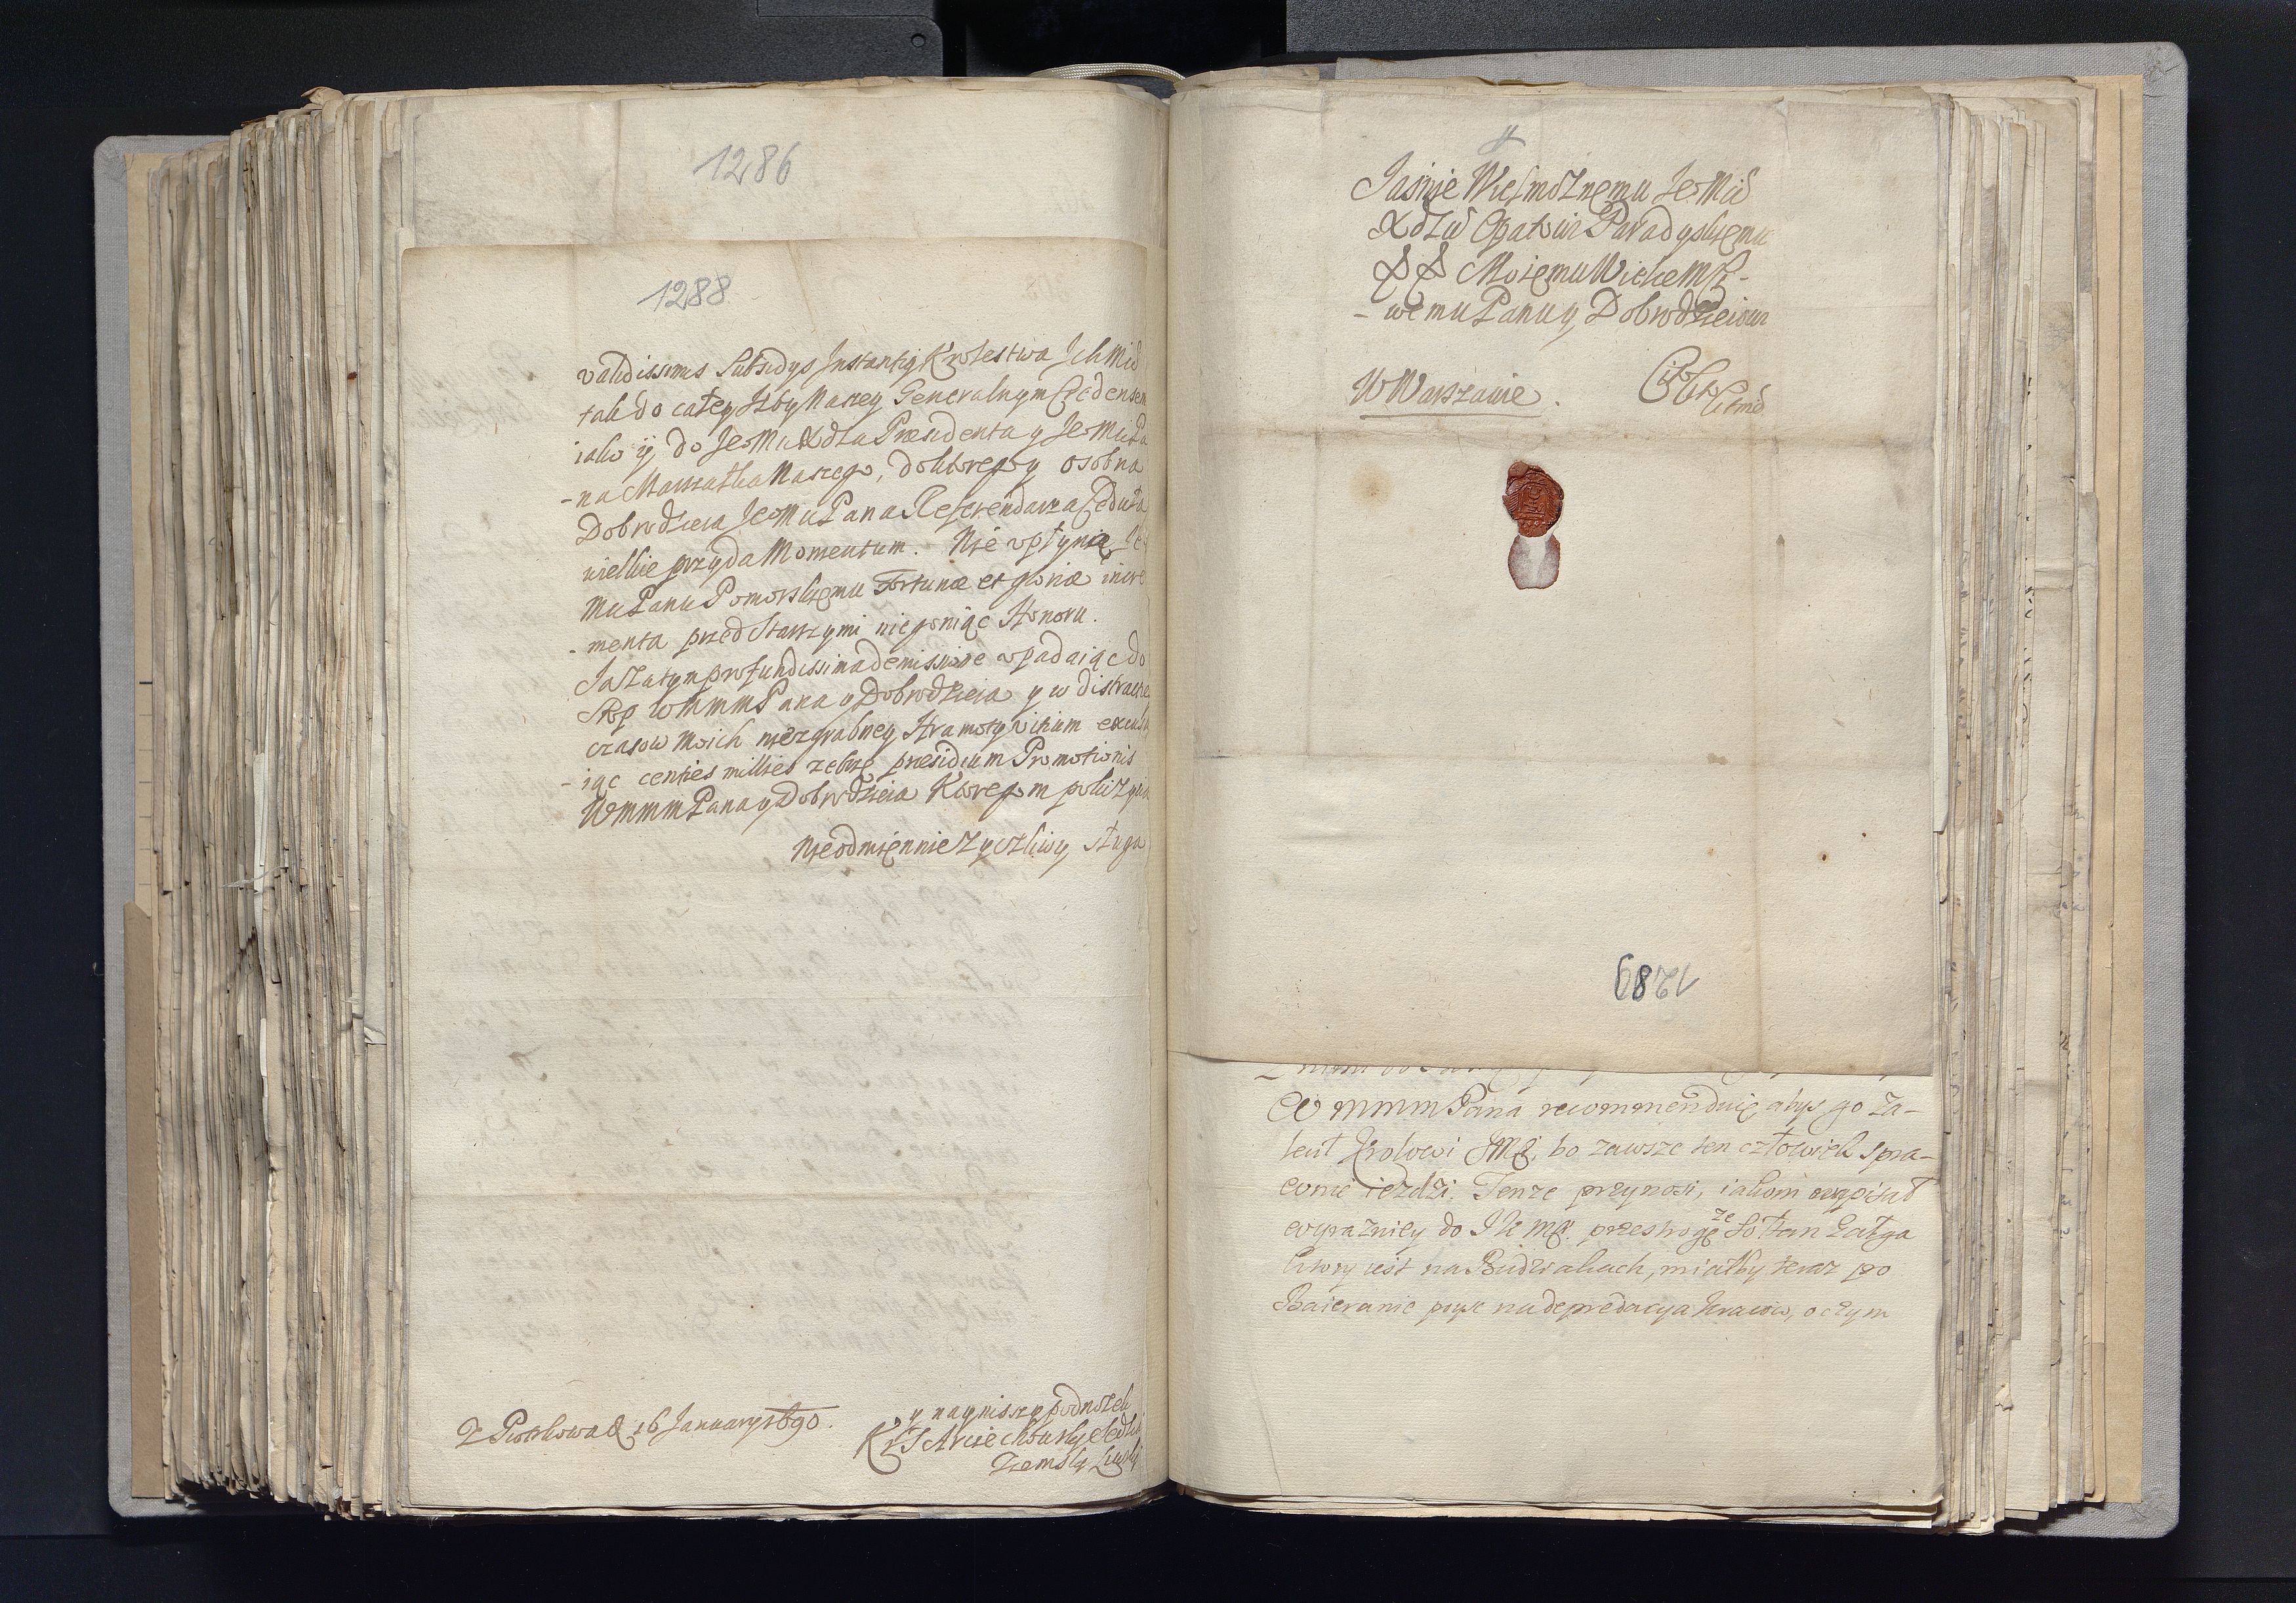 1286
1288
validissimis Subsidys Instantiy Krolestwa Ich Mić
tak do całey Izby Naszey Generalnym Credensem
iako y do Je Mu Xdza Præsidenta y Je Mu Pa
-na Marszałka Naszego, do ktorego y osobna
Dobrodzieia Je Mu Pana Referendarza Ceduła
wielkie przyda Momentum. Nie upłynie Je
Mu Panu Pomorskiemu Fortunæ et gloriæ incre
-menta przed Starszymi nie goniąc Honoru.
Ja zatym profundissima demissione upadaiąc do
Stop WMMM Pana y Dobrodzieia y w distractie
czasow moich niezgrabney Hramoty vitium excusu
-iąc centies millies zebrzę præsidium Promotionis
WMMM Pana y Dobrodzieia Ktoregom poki żyię
Nieodmiennie Zyczliwy sługa
y nayniszszy podnożek
Z Piotrkowa d 16 January 1690.
Ziemsky
Jasnie Wielmożnemu Je Mći
Xdzu Opatowi Paradyskiemu
Moiemu Wielce Mći-
-wemu Panu y Dobrodzieiowi
W Warszawie.
1289
W MMM Pana recommenduię abyś go za-
lecił Krolowi JMći, bo zawsze ten człowiek spra-
wnie iezdzi. Tenze przynosi, iakom wypisał
wyrazniey do JK Mći. przestrogę ze Sołtan Gałga
ktory iest na Budziakach, miałby teraz po
Baieramie poyść na depredacya kraiow, o czym